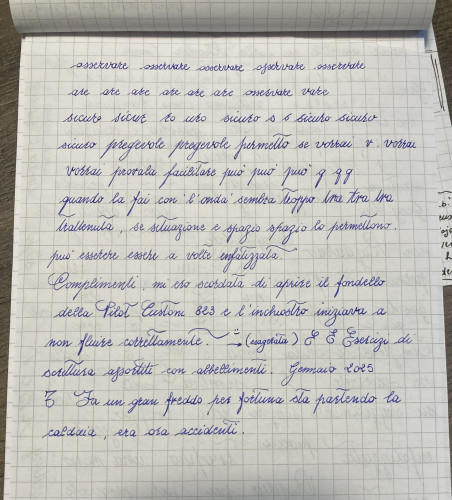 osservare osservare osservare osservare osservare
are are are are are are osservare vare
sicuro sicur ro uro sicuro s s sicuro sicuro
sicuro pregevole pregevole permetto se vorrai v. vorrai
vorrai provala facilitare può può può q q q
quando la fai con l'onda sembra troppo tra tra tra
trattenuta, se situazione e spazio spazio lo permettono.
può esserere essere a volte enfatizzata
Complimenti, mi ero scordata di aprire il fondello
della Pilot Custom 823 e l'inchiostro iniziava a
non fluire correttamente. → (esagerata) E E Esercizi di
scrittura assortiti con abbellimenti. Gennaio 2025
Fa un gran freddo per fortuna sta partendo la
caldaia, era ora accidenti.